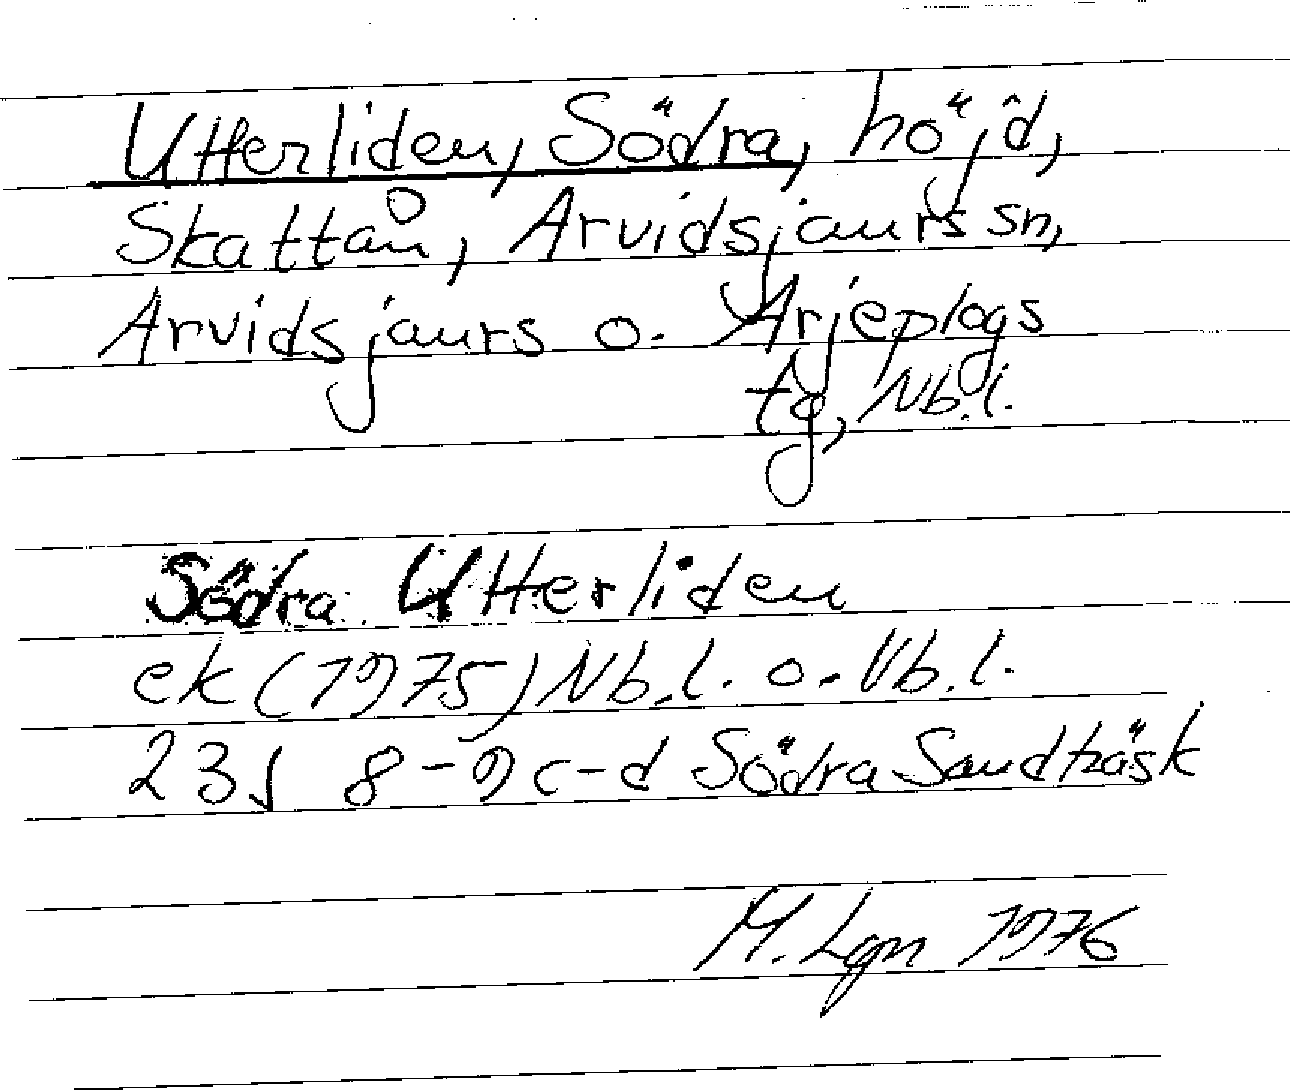 Utterliden, Södra, höjd,
Skattån, Arvidsjaurs sn,
Arvidsjaurs o. Arjeplogs
tg, Nb.l.
Södra Utterliden
ek (1975) Nb.l. o. Vb.l.
23J 8-9 c-d Södra Sandträsk
M. Lgn 1976